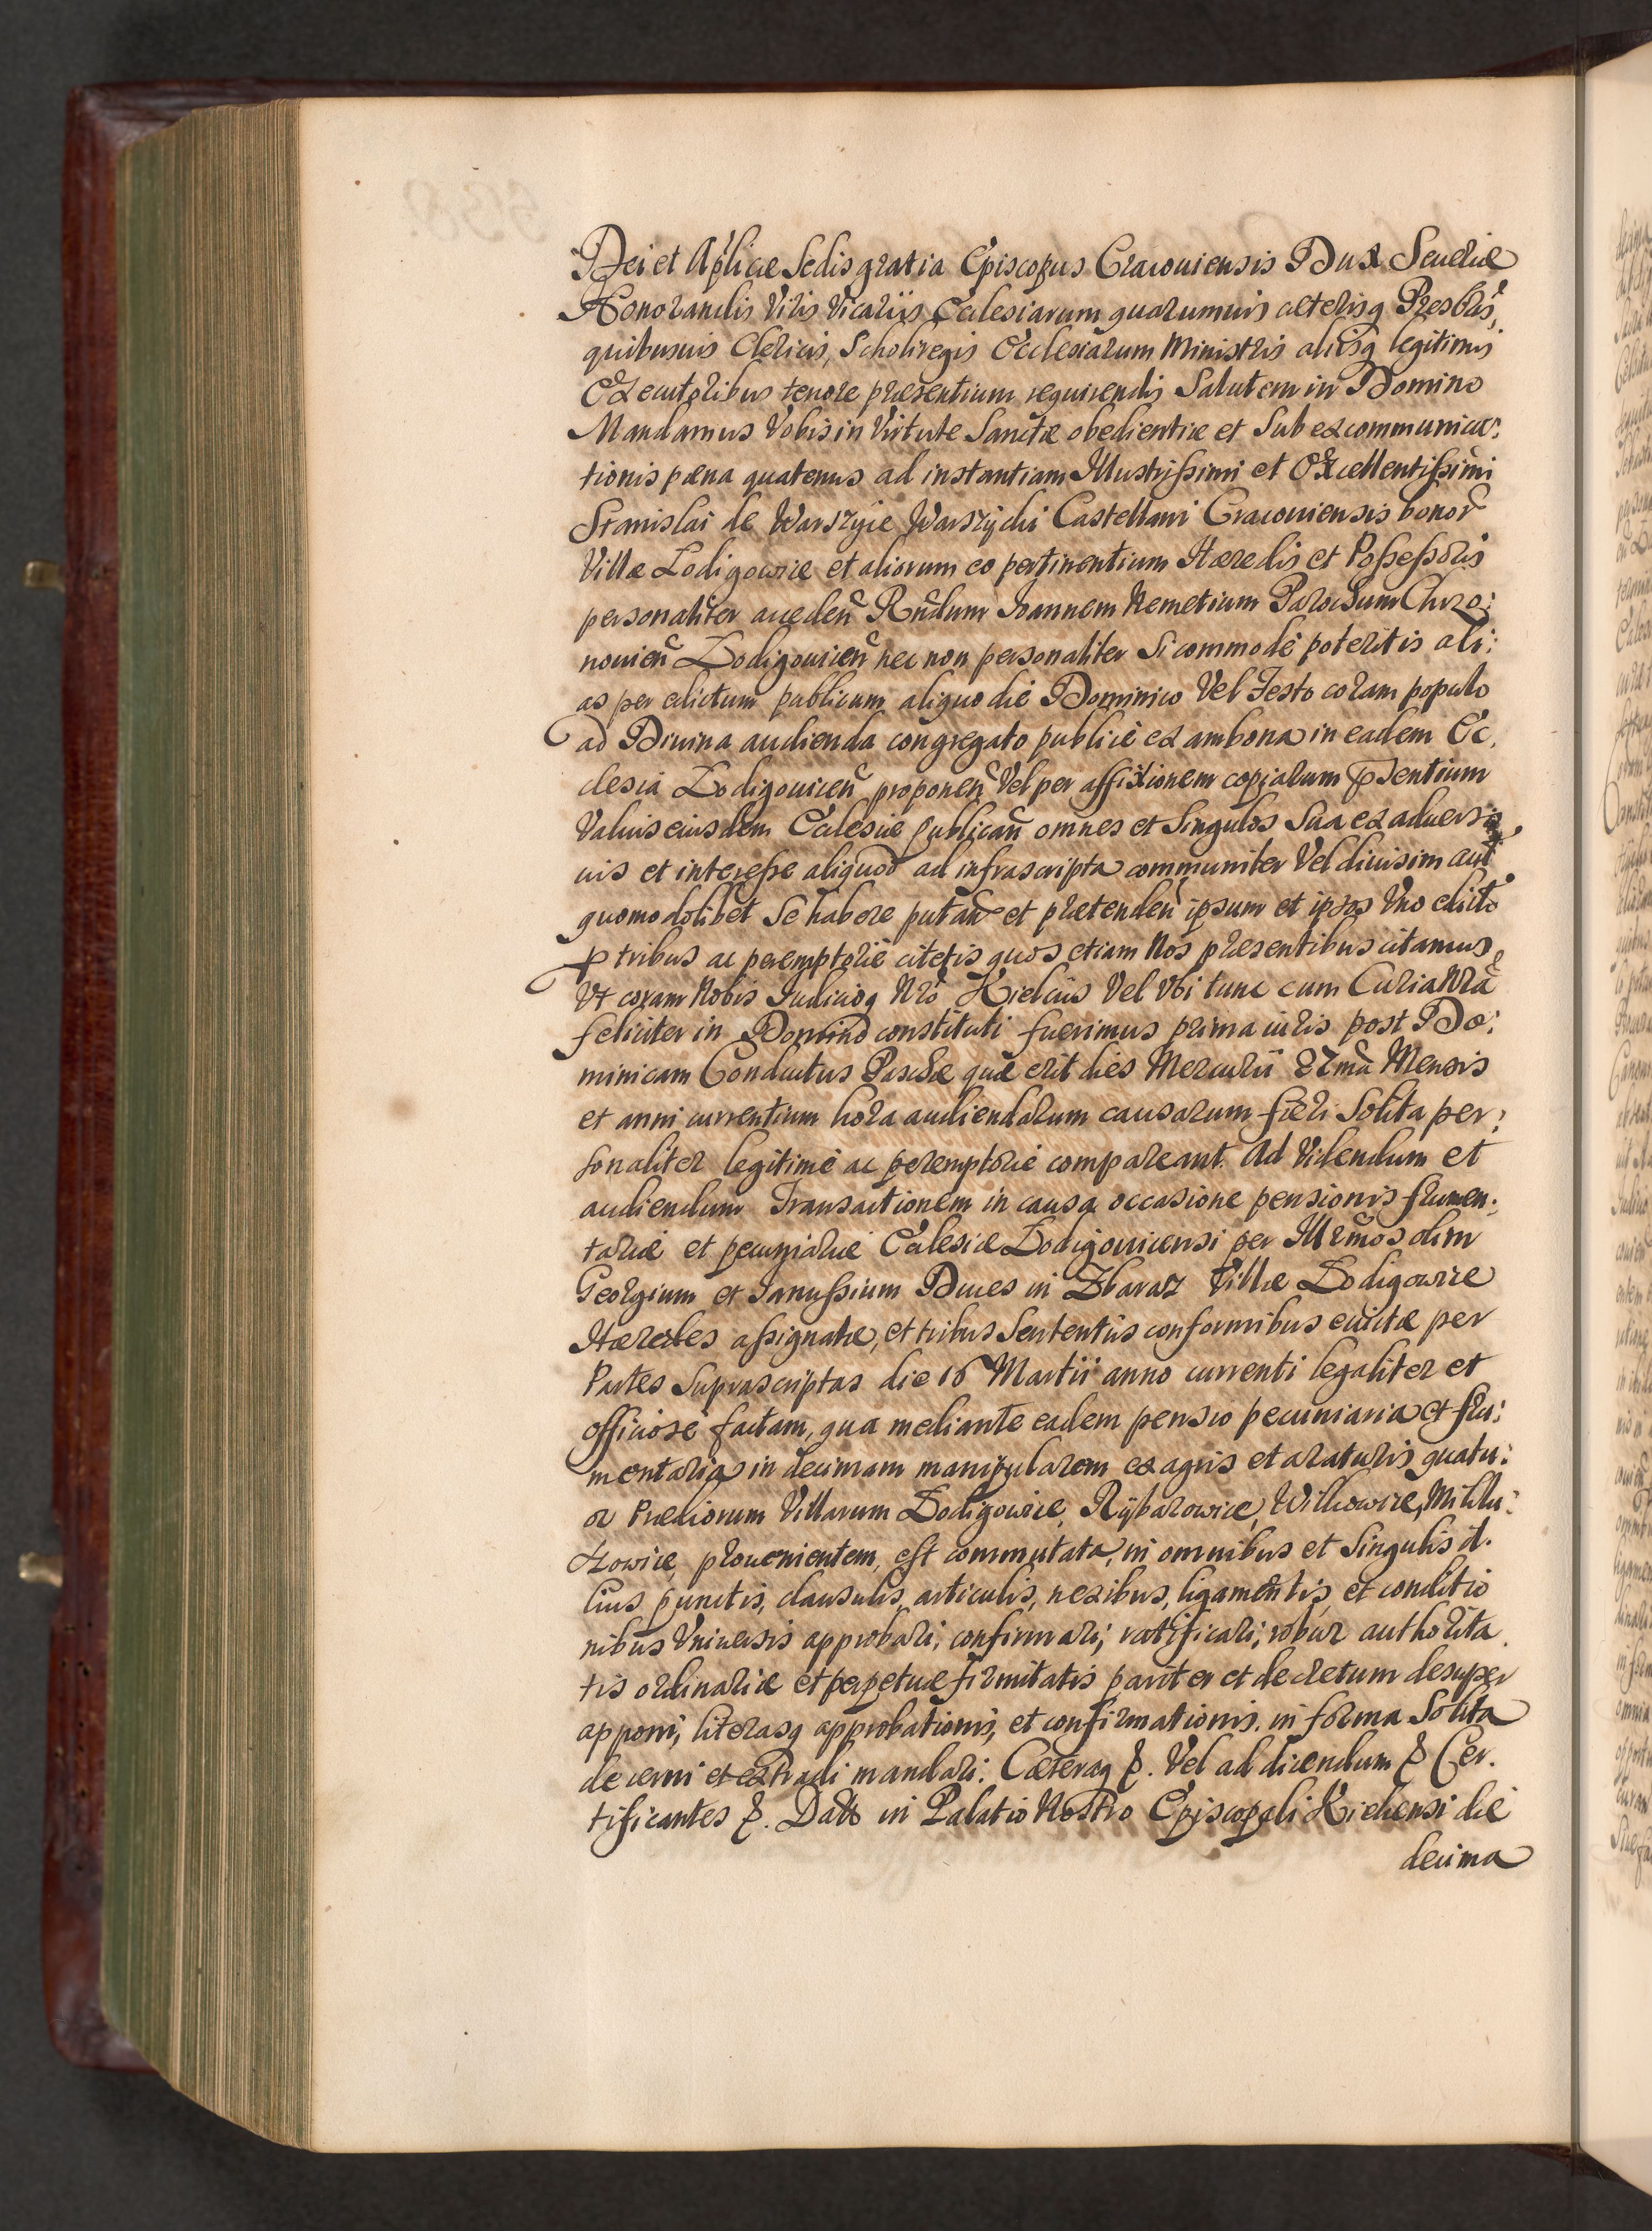 Dei et Aplicæ Sedis gratia Episcopus Cracouiensis Dux Seueriæ
Honorandis Viris Vicariis Ecclesiarum quarumuis cæterisq Presbris,
quibusuis Clericis, Scholiregis Ecclesiarum Ministris aliisq legitimis
Executoribus tenore præsentium requirendis Salutem in Domino
Mandamus Vobis in Virtute Sanctæ obedientiæ et Sub excommunica:
tionis pæna quatenus ad instantiam Illustrissimi et Excellentissimi
Stanislai de Warszyce Warszycki Castellani Cracouiensis bonor
Villæ Lodigowice et aliorum eo pertinentium Hæredis et Possessoris
personaliter acceden Rndum Ioannem Nemetium Parochum Chrzo:
nouien Lodigouicen nec non personaliter Si commode poteritis ali:
as per edictum publicum aliquo die Dominico Vel Festo coram populo
ad Diuina audienda congregato publice ex ambona in eadem Ec,
clesia Lodigouicen proponen Vel per affixionem copiarum psentium
Valuis eiusdem Ecclesiæ publican omnes et Singulos Sua ex aduerso
uis et interesse aliquod ad infrascripta communiter Vel diuisim aut
quomodolibet Se habere putan et prætenden ipsum et ipsos Vno edicto
p tribus ac peremptorie citetis quos etiam Nos præsentibus citamus,
Vt coram Nobis Iudicioq Nro Kielciis Vel Vbi tunc cum Curia Nra
feliciter in Domino constituti fuerimus prima iuris post Do:
minicam Conductus Paschæ quæ erit dies Mercurii 27ma Mensis
et anni currentium hora audiendarum causarum fieri Solita per:
sonaliter legitime ac peremptorie compareant. Ad Videndum et
audiendum Transactionem in causa occasione pensionis frumen:
tariæ et pecuniariæ Ecclesiæ Lodigouicensi per Illrmos olim
Georgium et Ianussium Duces in Zbaraz Villæ Lodigowice
Hæredes assignatæ, et tribus Sententiis conformibus euictæ per
Partes Suprascriptas die 16 Martii anno currenti legaliter et
officiose factam, qua mediante eadem pensio pecuniaria et fru:
mentaria in decimam manipularem ex agris et araturis quatu:
or Prædiorum Villarum Lodigowice, Rybarowice, Wilkowice, Miklu:
szowice, prouenientem, est commutata, in omnibus et Singulis il.
lius punctis, clausulis, articulis, nexibus, ligamentis, et conditio
nibus Vniuersis approbari, confirmari, ratificari, robur authorita
tis ordinariæ et perpetuæ firmitatis pariter et decretum desuper
apponi, literasq approbationis, et confirmationis in forma Solita
decerni et extradi mandari. Cæteraq &. Vel ad dicendum & Cer.
tificantes &. Datt in Palatio Nostro Episcopali Kielcensi die
decima